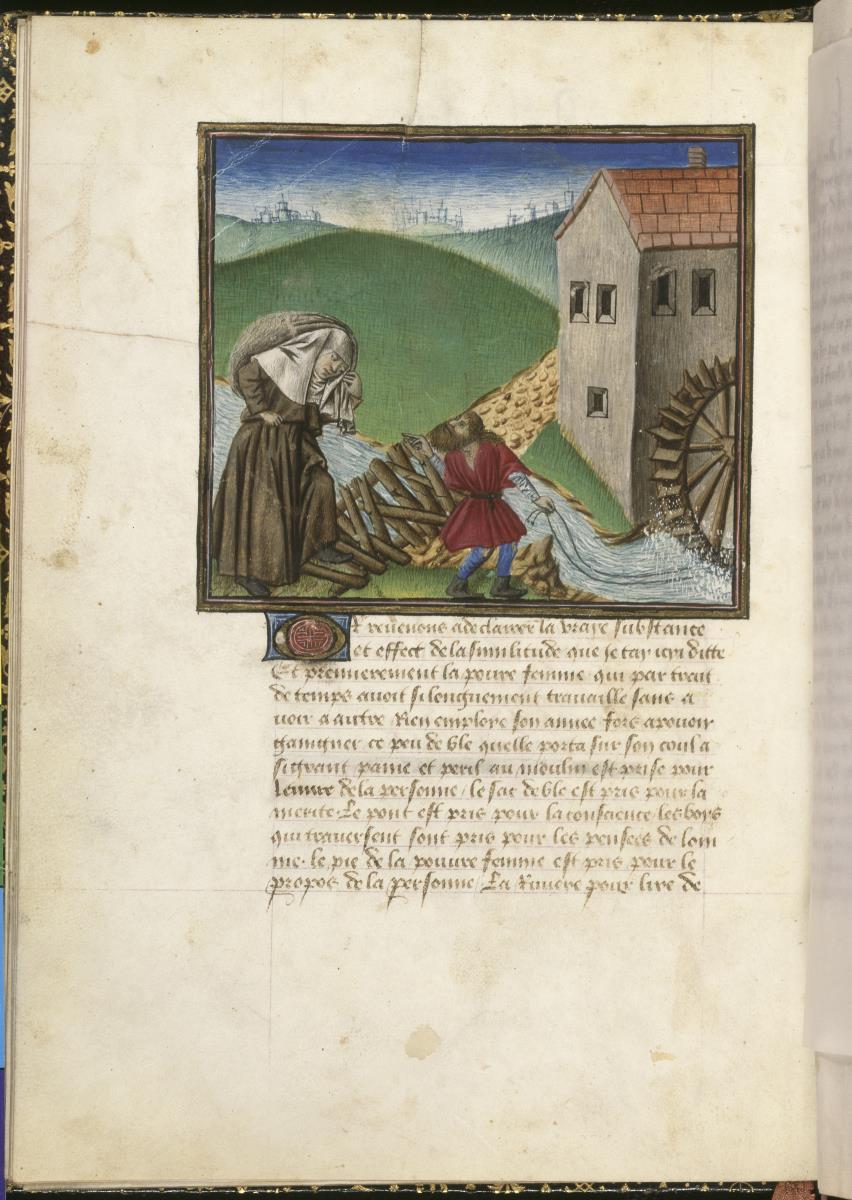 Or revenons a declairer la vraye substance
et effect de la similitude que je cay icy ditte
Et premierement la povre femme qui par trait
de temps avoit si longuement travaille sans a
voir a autre Rien employe son annee fors a povoir
gaingner ce peu de ble quelle porta sur son coul a
si grant paine et peril au moulin est prise pour
leuvre de la personne / le sac de ble est pris pour la
merite. Le pont est pris pour la conscience les boys
qui traversent sont pris pour les pensees de lom
me. le pie de la pouvre femme est pris pour le
propos de la personne / La Riviere pour lire de